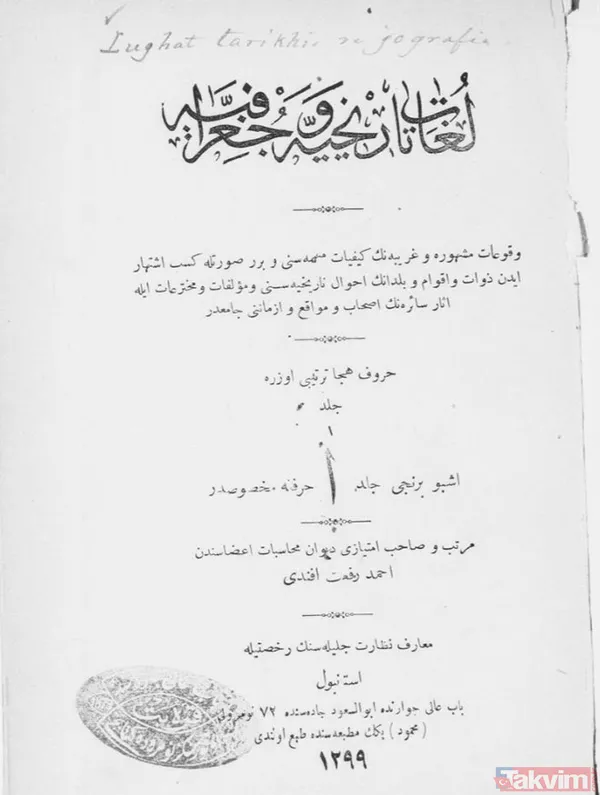 Lughat tarikhie ve jografie
لُغَات تَارِيخِيَّه وَ جُغرَافِيَّه
وقوعات مشهوره و غريبه‌نك كيفيات مهمه‌سنى و برر صورتله كسب اشتهار
ايدن ذوات و اقوام و بلدانك احوال تاريخيه‌سنى و مؤلفات و مخترعات ايله
آثار سائره‌نك اصحاب و مواقع و ازماننى جامعدر
حروف هجا ترتيبى اوزره
جلد
١
اشبو برنجى جلد ا حرفنه مخصوصدر
مرتب و صاحب امتيازى ديوان محاسبات اعضاسندن
احمد رفعت افندى
معارف نظارت جليله‌سنك رخصتيله
استنبول
باب عالى جوارنده ابوالسعود جاده‌سنده ٧٢ نومرولى
( محمود ) بك‌ك مطبعه‌سنده طبع اولندى
١٢٩٩
Takvim